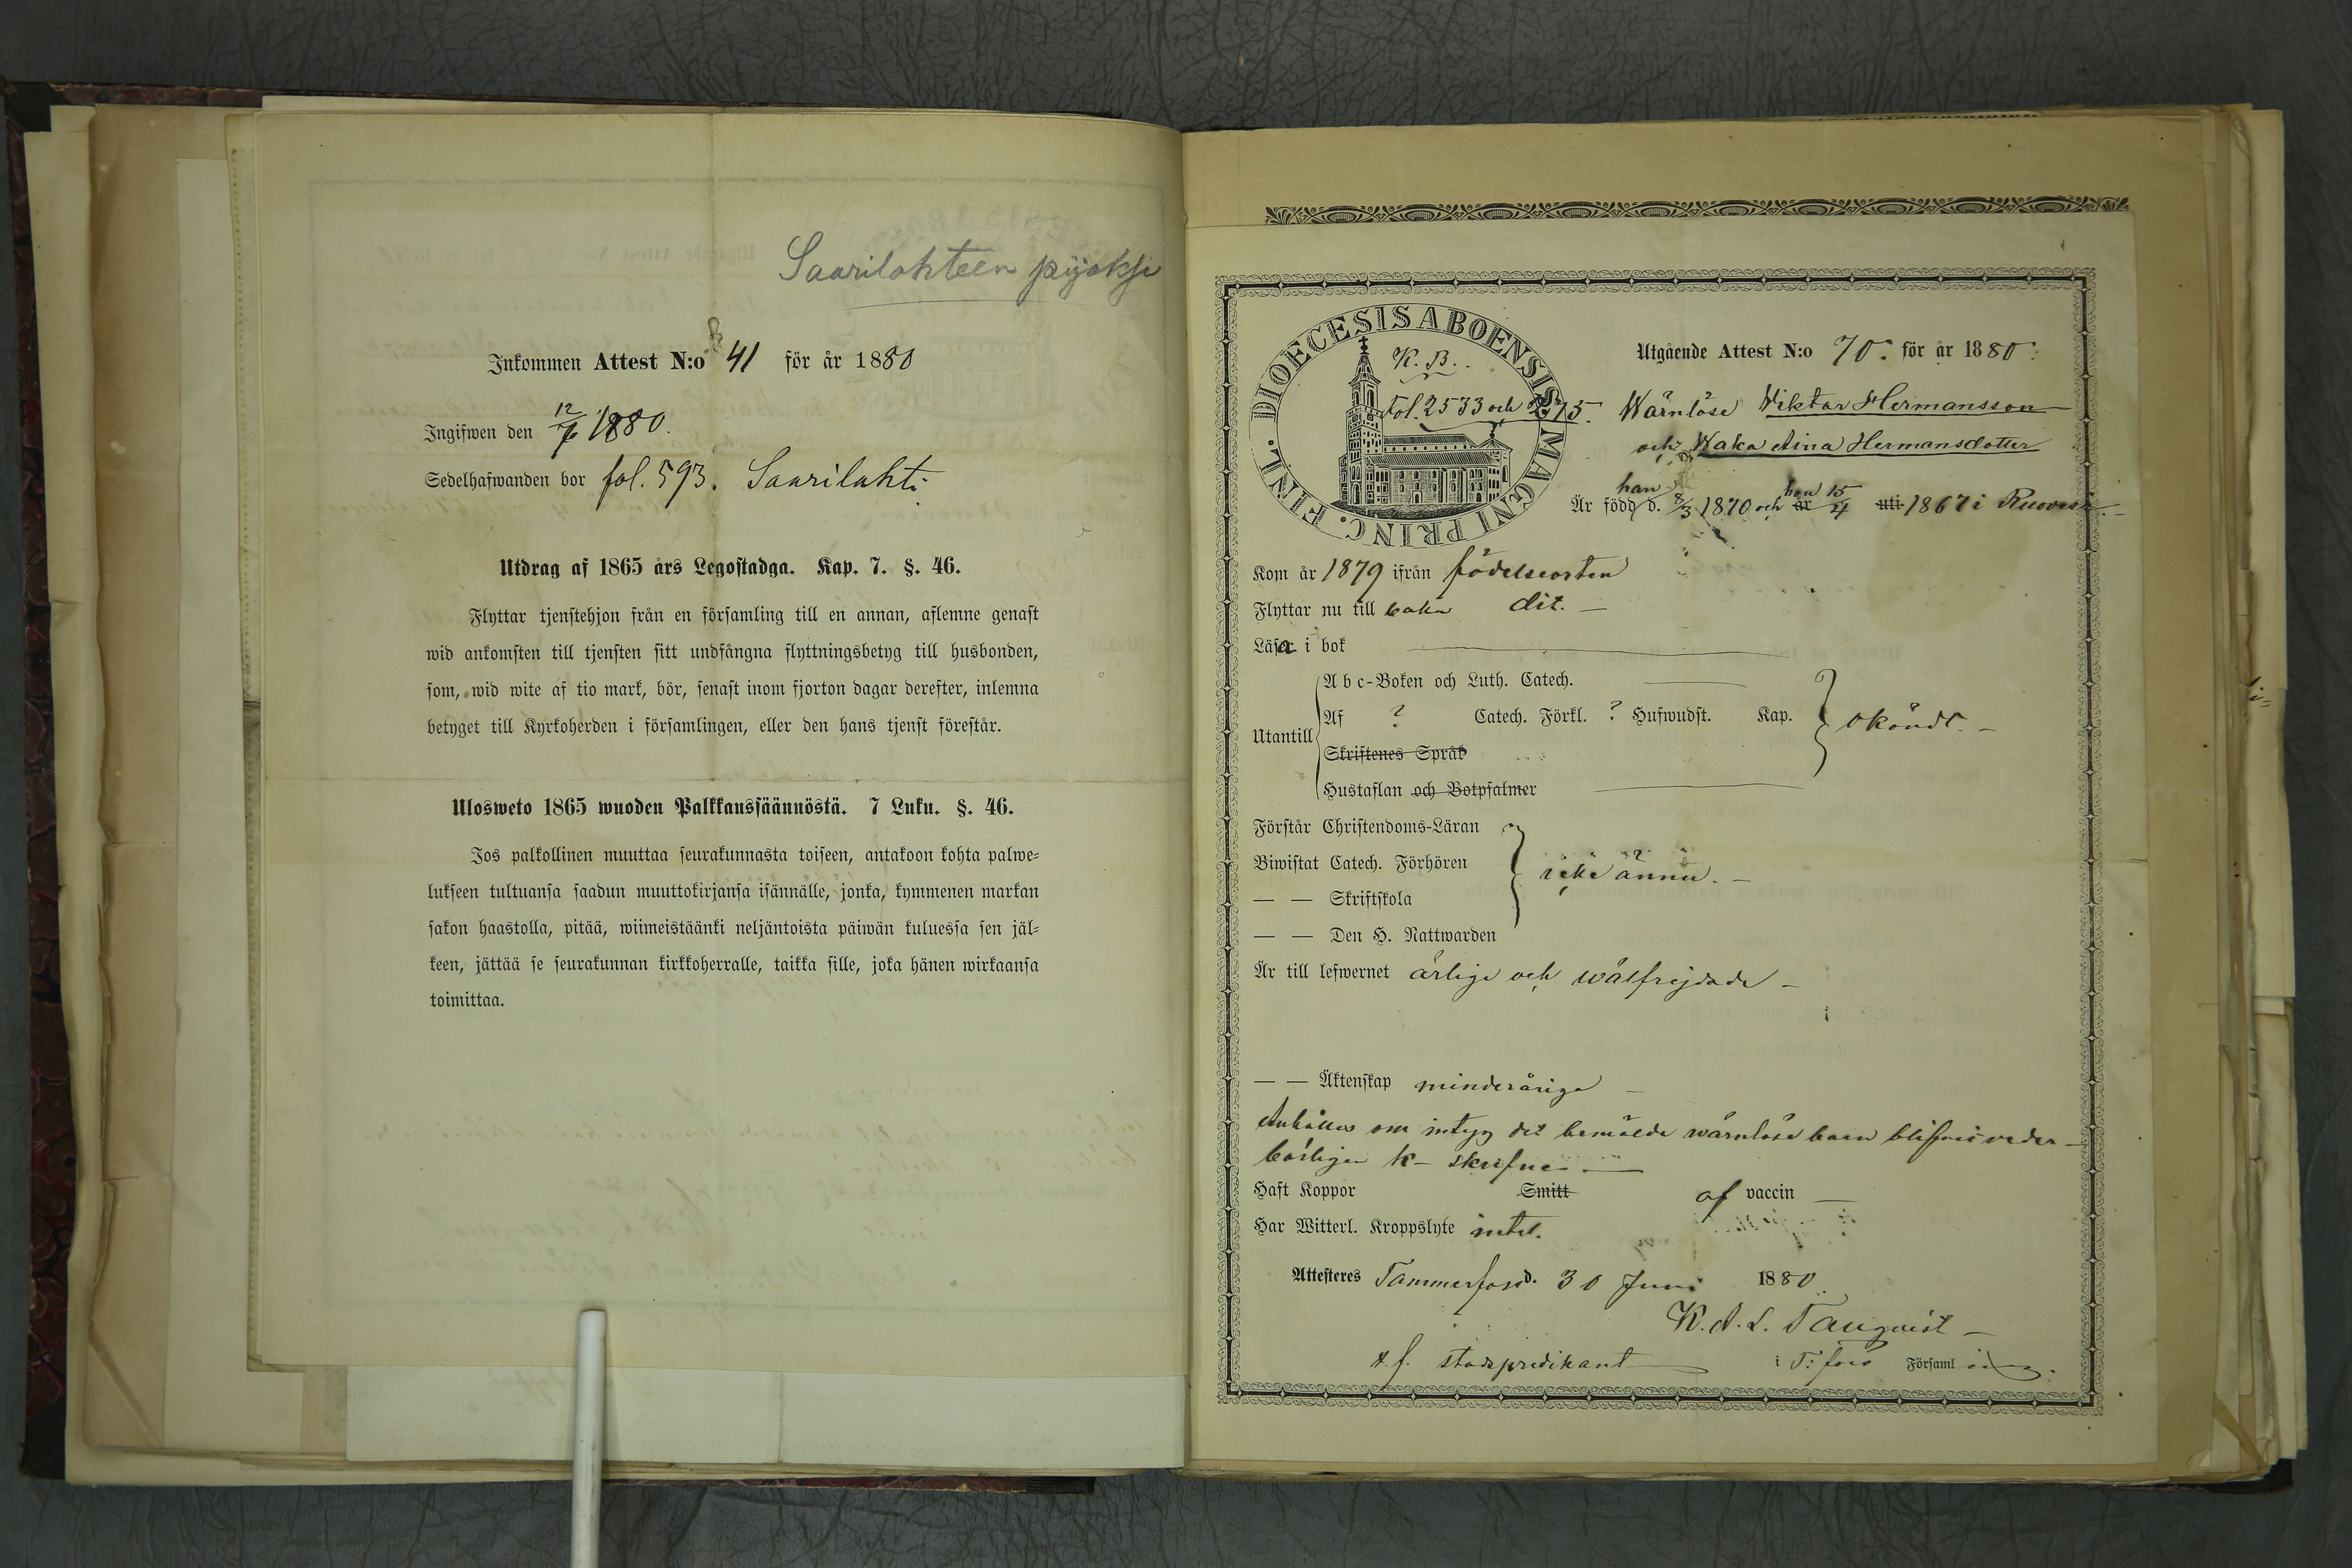 Saarilahteen pijaksi
Inkommen Attest N:o 41 för år 1880
Ingifwen den 12/7 1880.
Sedelhafwanden bor fol. 593. Saarilahti
Utdrag af 1865 års Legostadga. Kap. 7. §. 46.
Flyttar tjenstehjon från en församling till en annan, aflemne genast
wid ankomsten till tjensten sitt undfångna flyttningsbetyg till husbonden,
som, wid wite af tio mark, bör, senast inom fjorton dagar derefter, inlemna
betyget till Kyrkoherden i församlingen, eller den hans tjenst förestår.
Ulosweto 1865 wuoden Palkkaussäännöstä. 7 Luku. §. 46.
Jos palkollinen muuttaa seurakunnasta toiseen, antakoon kohta palwe=
lukseen tultuansa saadun muuttokirjansa isännälle, jonka, kymmenen markan
sakon haastolla, pitää, wiimeistäänki neljäntoista päiwän kuluessa sen jäl=
keen, jättää se seurakunnan kirkkoherralle, taikka sille, joka hänen wirkaansa
toimittaa.
DIOECESIS ABOENSIS MAGNI PRINC. FINL.
K. B.
Fol. 2533 och
Utgående Attest N:o 70. för år 1880.
Wärnlöse Viktor Hermansson
och Waka Aina Hermansdotter
han hon
Är född d. 8/3 1870 och är 15/4 uti 1867 i Ruovesi.
Kom år 1879 ifrån födelseorten
Flyttar nu till baka dit. —
Läsa i bok
Utantill
Abc-Boken och Luth. Catech.
Af ? Catech. Förkl. ? Hufwudst. Kap. okändt. —
Skriftenes Språk
Hustaflan och Botpsalmer
Förstår Christendoms-Läran
Biwistat Catech. Förhören icke ännu. —
— — Skriftskola
— — Den H. Nattwarden
Är till lefwernet ärlige och wälfrejdade —
— — Äktenskap minderåriga —
Anhålles om intyg det bemälde wärnlöse barn blifvit veder-
börligen k- skrifne —
Haft Koppor Smitt af vaccin —
Har Witterl. Kroppslyte intet.
Attesteres Tammerfors d. 30 Juni 1880
K. A. L. Tanqvist —
t. f. stadspredikant i T:fors Församling.